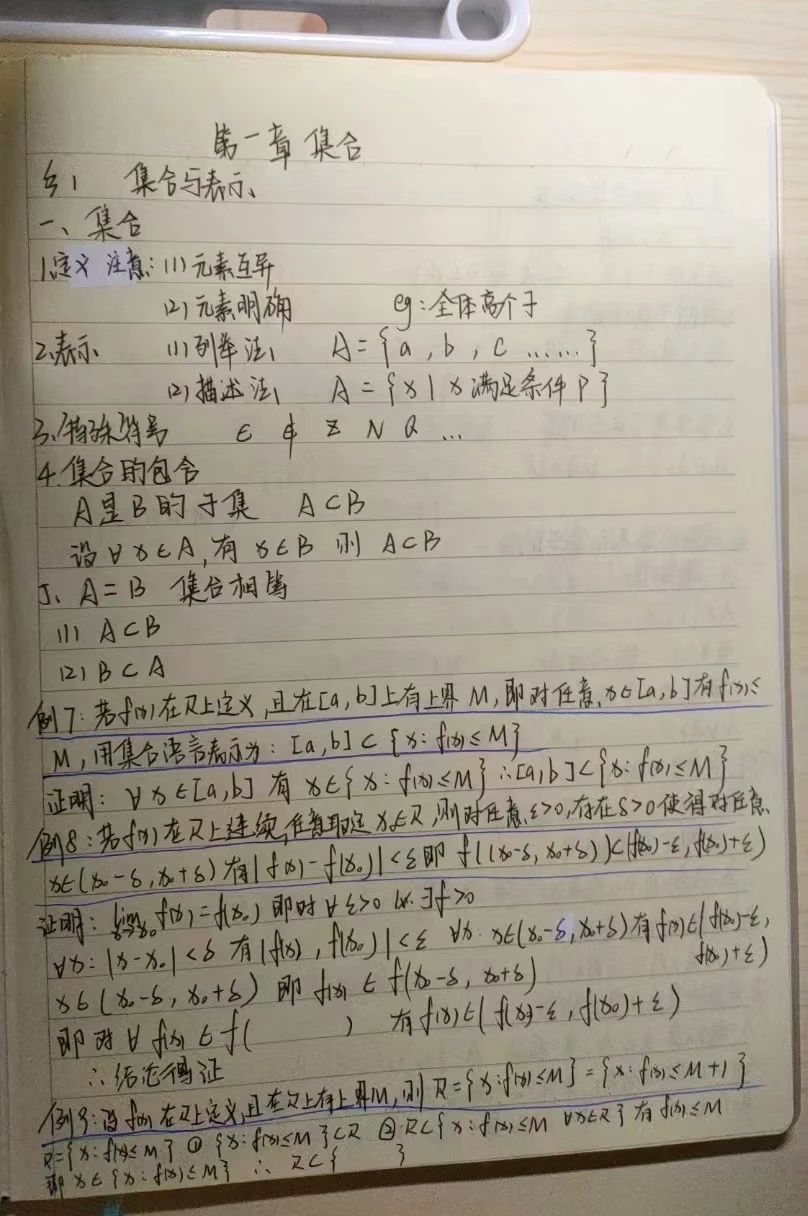 第一章 集合
§1 集合与表示
一、集合
1.定义 注意:(1)元素互异
(2)元素明确 eg:全体高个子
2.表示 (1)列举法 A={a,b,c……}
(2)描述法 A={x|x满足条件P}
3.特殊符号 ∈ ∉ Z N Q …
4.集合的包含
A是B的子集 A⊂B
设∀x∈A,有x∈B则A⊂B
5、A=B 集合相等
(1) A⊂B
(2) B⊂A
例7:若f(x)在R上定义,且在[a,b]上有上界M,即对任意x∈[a,b]有f(x)≤
M,用集合语言表示为:[a,b]⊂{x:f(x)≤M}
证明:∀x∈[a,b]有x∈{x:f(x)≤M}∴[a,b]⊂{x:f(x)≤M}
例8:若f(x)在R上连续,任意取定x₀∈R,则对任意ε>0,存在δ>0使得对任意
x∈(x₀-δ,x₀+δ)有|f(x)-f(x₀)|<ε即f((x₀-δ,x₀+δ))⊂(f(x₀)-ε,f(x₀)+ε)
证明:lim x→x₀ f(x)=f(x₀)即对∀ε>0 ∃δ>0
∀x:|x-x₀|<δ有|f(x),f(x₀)|<ε ∀x:x∈(x₀-δ,x₀+δ)有f(x)∈(f(x₀)-ε,
f(x₀)+ε)
x∈(x₀-δ,x₀+δ)即f(x)∈f(x₀-δ,x₀+δ)
即对∀f(x)∈f( ) 有f(x)∈(f(x₀)-ε,f(x₀)+ε)
∴结论得证
例9:设f(x)在R上定义,且在R上有上界M,则R={x:f(x)≤M}={x:f(x)≤M+1}
R={x:f(x)≤M} ①{x:f(x)≤M}⊂R ②R⊂{x:f(x)≤M ∀x∈R}有f(x)≤M
即x∈{x:f(x)≤M} ∴R⊂{ }